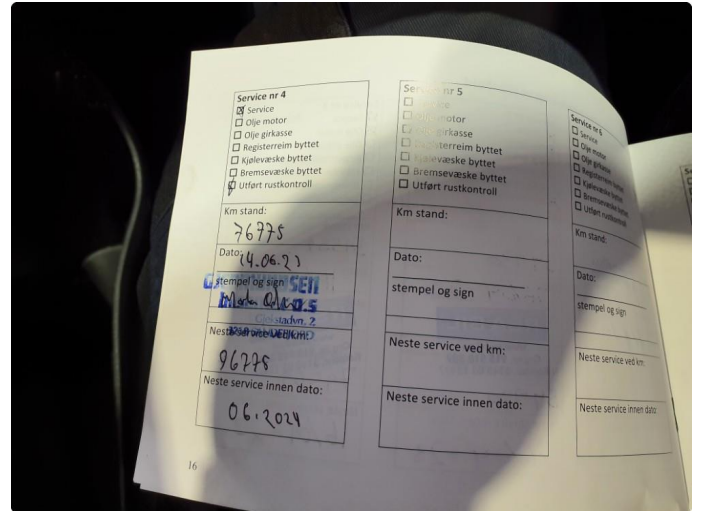 Service nr 4
Service
Olje motor
Olje girkasse
Registerreim byttet
Kjølevæske byttet
Bremsevæske byttet
Utført rustkontroll
Km stand:
76775
Dato: 14.06.23
stempel og sign
Gjekstadvn. 2
Neste service ved km:
96775
Neste service innen dato:
06.2024
16
Service nr 5
Service
Olje motor
Olje girkasse
Registerreim byttet
Kjølevæske byttet
Bremsevæske byttet
Utført rustkontroll
Km stand:
Dato:
stempel og sign
Neste service ved km:
Neste service innen dato:
Service nr 6
Service
Olje motor
Olje girkasse
Registerreim byttet
Kjølevæske byttet
Bremsevæske byttet
Utført rustkontroll
Km stand:
Dato:
stempel og sign
Neste service ved km:
Neste service innen dato